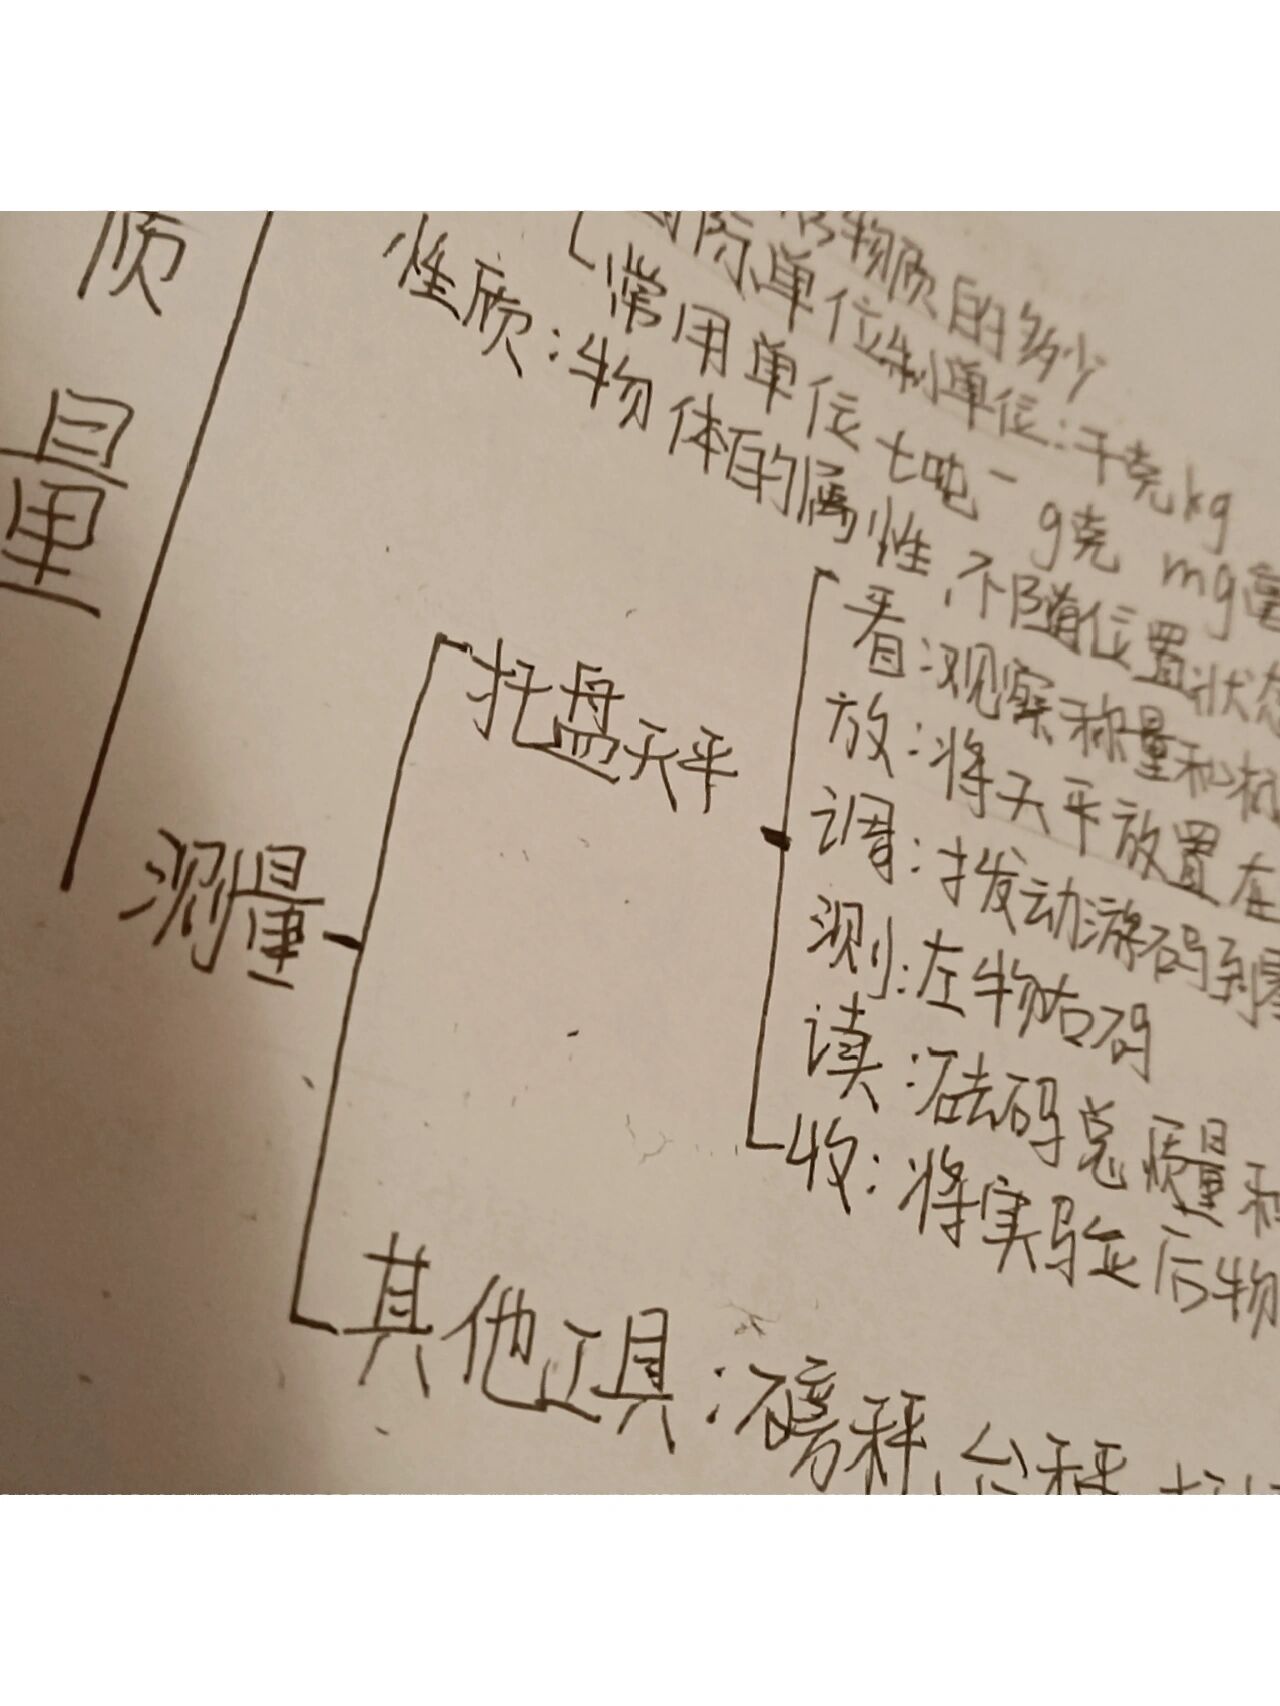 质量
物质的多少
国际单位制单位:千克kg
常用单位 t吨 g克 mg毫
性质:物体的属性,不随位置状态
测量
托盘天平
看:观察称量和标
放:将天平放置在
调:拨动游码到零
测:左物右码
读:砝码总质量和
收:将实验后物
其他工具:磅秤、台秤、